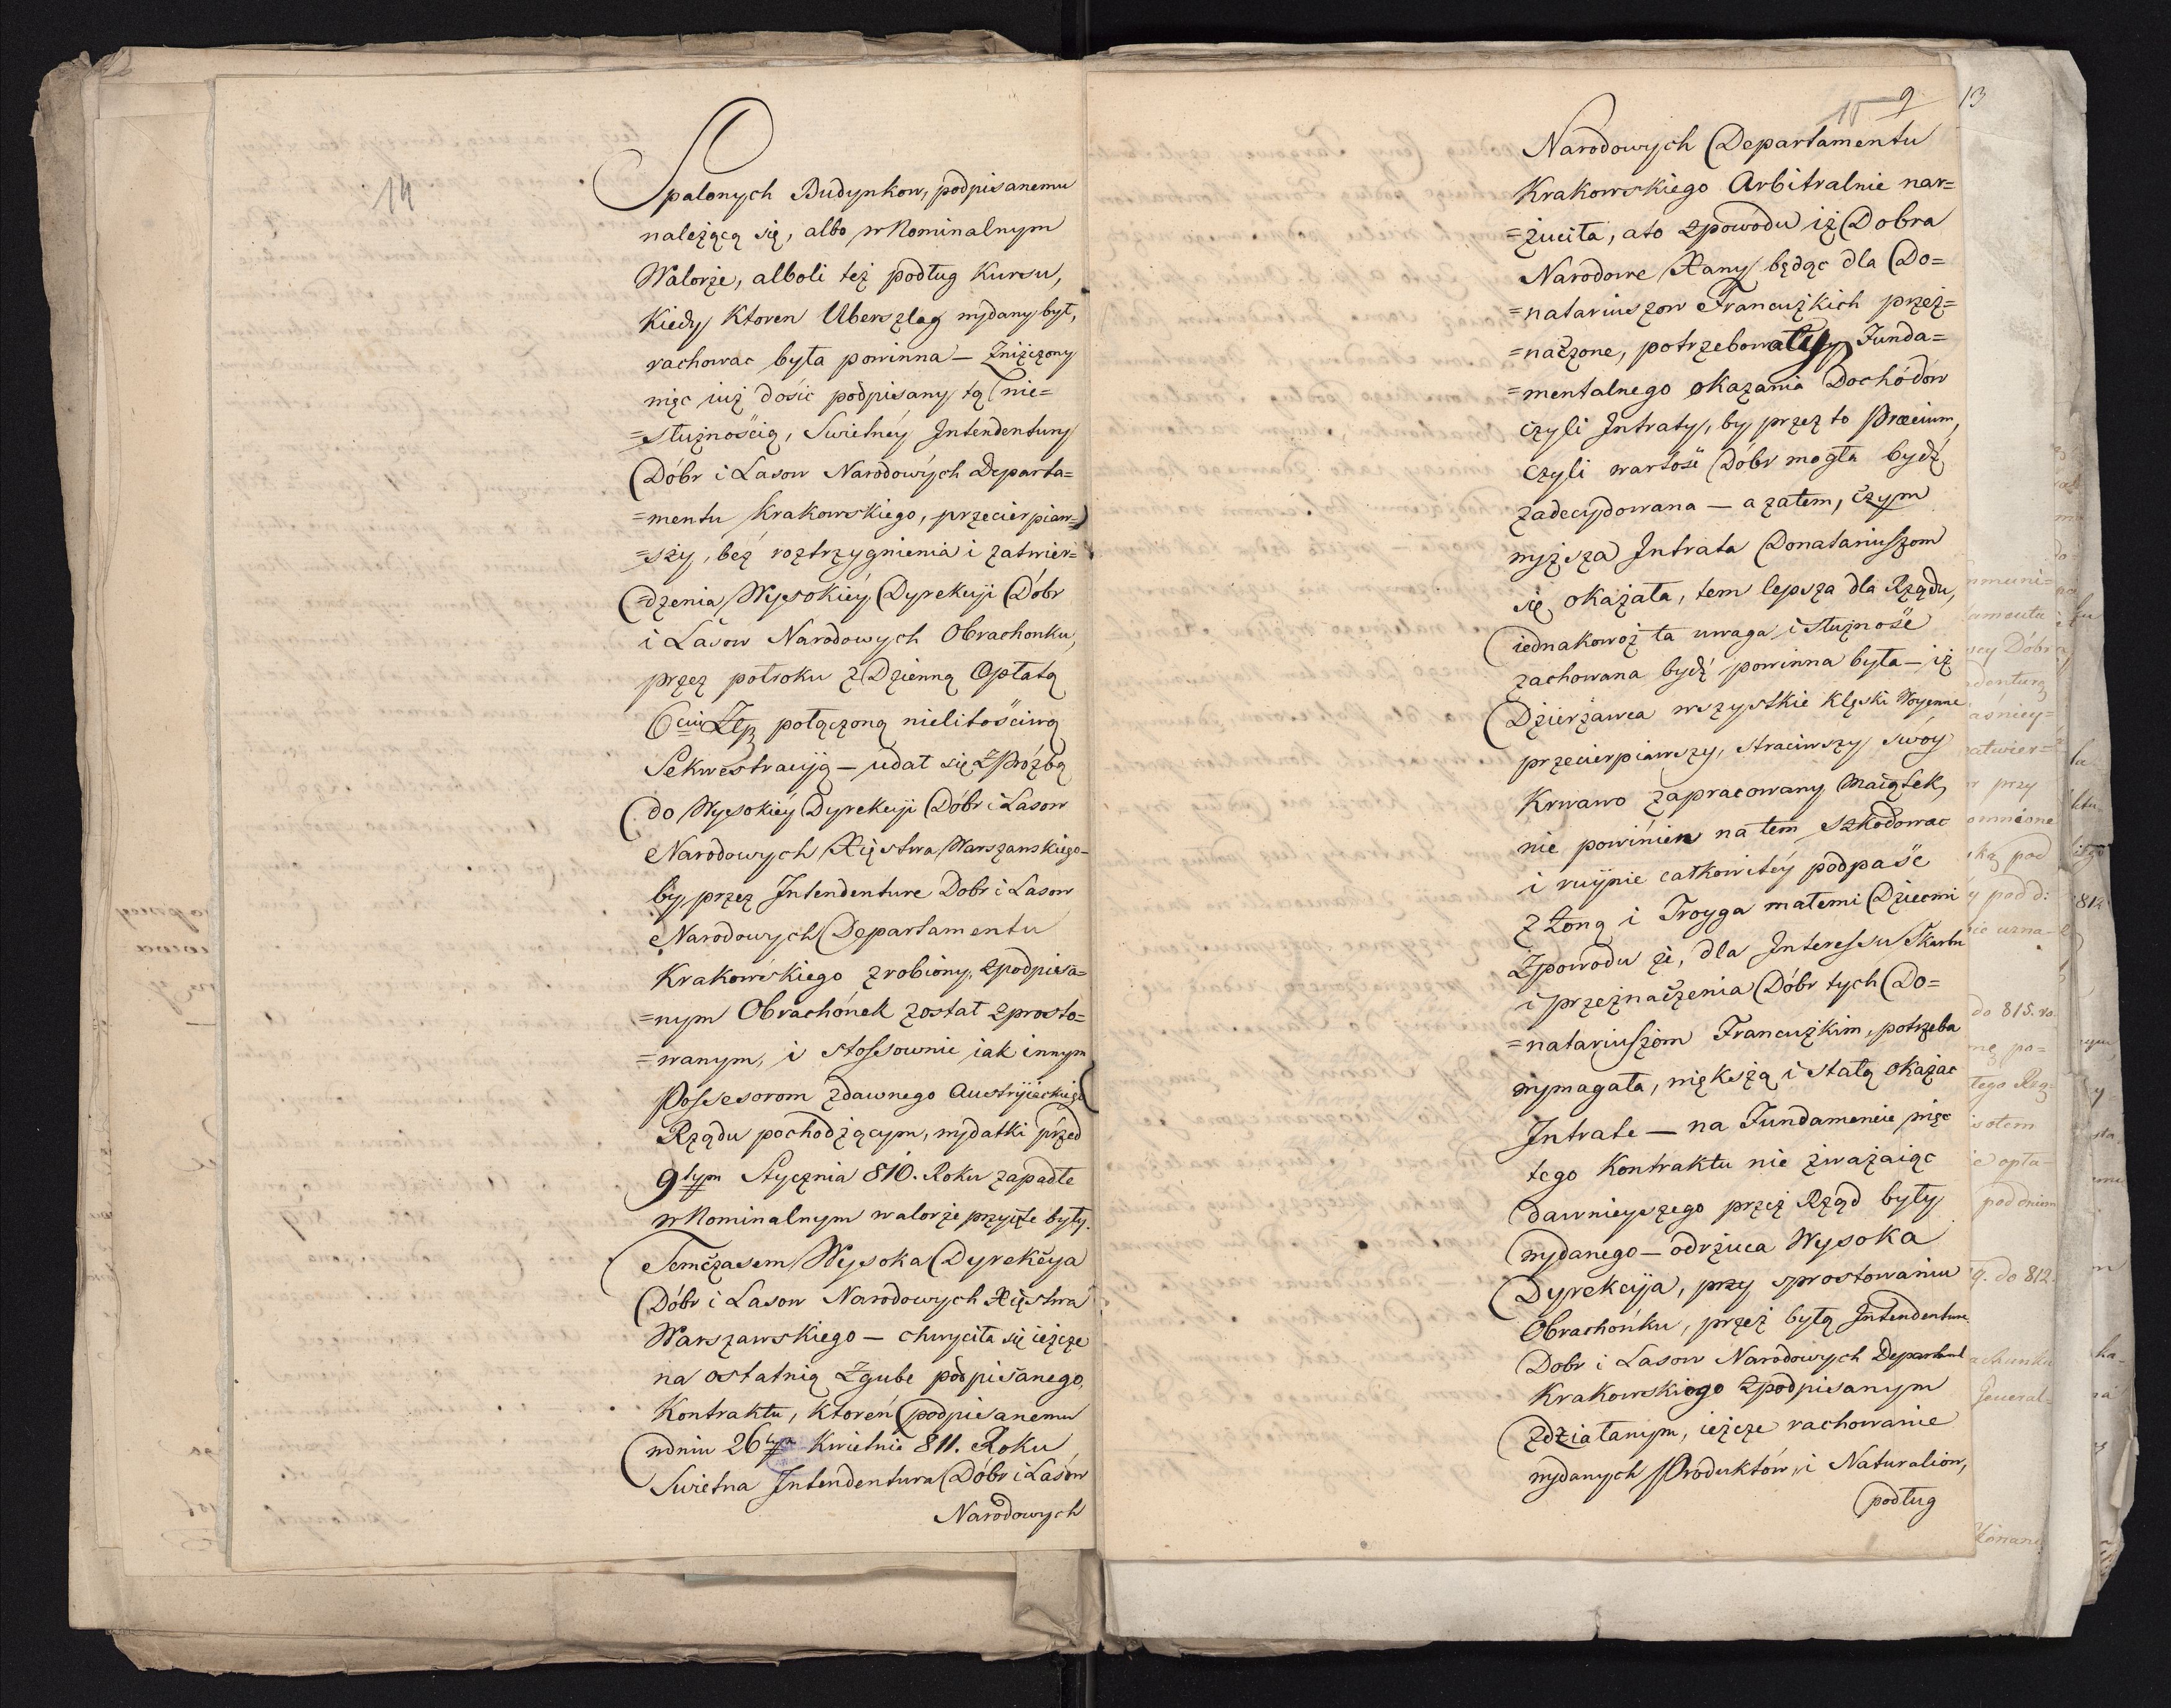 14
Spalonych Budynkow, podpisanemu
należącą się, albo w Nominalnym
Walorze, alboli też podług Kursu,
Kiedy Ktoren Uberszlag wydany był,
rachowac była powinna — Zniszczony
więc iuż dosić podpisany tą nie=
=słusznościa, Swietnéy Intendentury
Dóbr i Lasow Narodowych Departa=
=mentu Krakowskiego, przecierpiaw=
=szy, béz roztrzygnienia i zatwier=
=dzenia Wysokiéy Dyrekcyi Dóbr
i Lasow Narodowych Obrachonku,
przez potroku z Dzienną Opłatą
6ciu Złp połączoną nielitościwą
Sekwestracyją — udał się z Prózbą
do Wysokiéy Dyrekcyi Dóbr i Lasow
Narodowych Xięstwa Warszawskiego —
by przez Intendenture Dobr i Lasow
Narodowych Departamentu
Krakowskiego zrobiony, z podpisa=
=nym Obrachónek został zprosto=
=wanym, i stossownie iak innym
Possesorom z dawnego Austryiackiego
Rządu pochodzącym, wydatki przed
9tym Stycznia 810. Roku zapadłe
w Nominalnym walorze przyięte były.
Temczasem Wysoka Dyrekcya
Dóbr i Lasow Narodowych Xięstwa
Warszawskiego — chwyciła się ieszcze
na ostatnią Zgube podpisanego,
Kontraktu, ktoren podpisanemu
w dniu 26tym Kwietnia 811. Roku
Swietna Intendentura Dóbr i Lasów
Narodowych
15 9 13
Narodowych Departamentu
Krakowskiego Arbitralnie nar=
=zuciła, a to z powodu iż Dobra
Narodowe Xany będąc dla Do=
=natariuszow Francuzkich przez=
=naczone, potrzebowały Funda=
=mentalnego okazania Dochódow
czyli Intraty, by przez to Præcium,
czyli wartość Dóbr mogła bydź
zadecydowana — a zatem, czym
wyższa Intrata Donatariuszom
się okazała, tem lepsza dla Rządu,
iednakowoż ta uwaga i słuzność
zachowana bydź powinna była — iż
Dzierżawca wszystkie klęski Woyenne
przecierpiawszy, straciwszy swóy
Krwawo zapracowany Maiątek,
nie powinien na tem szkodowac
i ruijnie całkowitéy podpaść
z Żoną i Troyga małemi Dziecmi
z powodu że, dla Interessu Skarbu
i przeznaczenia Dóbr tych Do=
=natariuszóm Francuzkim, potrzeba
wymagała, większą i stałą okazac
Intrate — na Fundamencie więc
tego Kontraktu nie zważaiąc
dawnieyszego przez Rząd były
wydanego — odrzuca Wysoka
Dyrekcija, przy sprostowaniu
Obrachónku, przez byłą Intendenture
Dobr i Lasow Narodowych Departament
Krakowskiego z podpisanym
zdziałanym, ieszcze rachowanie
wydanych Produktów, i Naturaliow,
podług